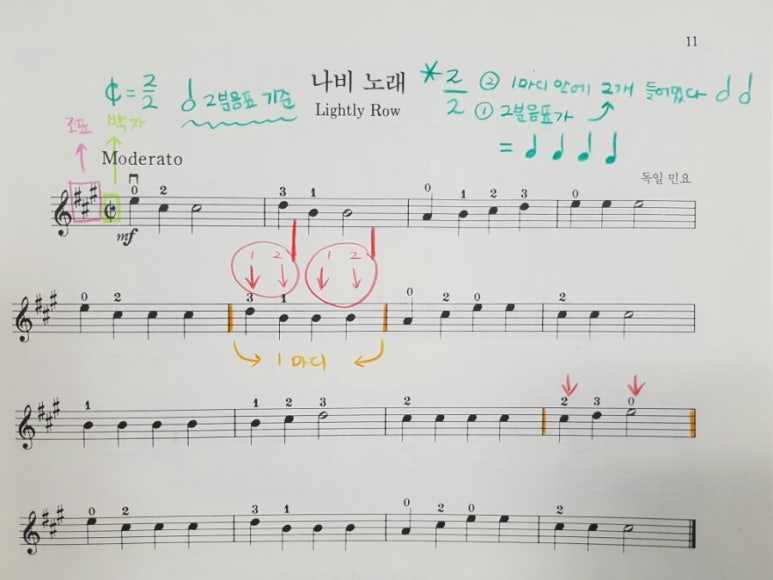 11
¢ = 2/2 2분음표 기준
나비 노래
Lightly Row
* 2/2 ② 1마디 안에 2개 들어있다
① 2분음표가
=
조표 박자
Moderato
독일 민요
0 2 3 1 0 1 2 3 0
mf
1 2 1 2
0 2 3 1 0 2 0 0 2
1 마디
1 1 2 3 2 2 3 0
0 2 3 1 0 2 0 2